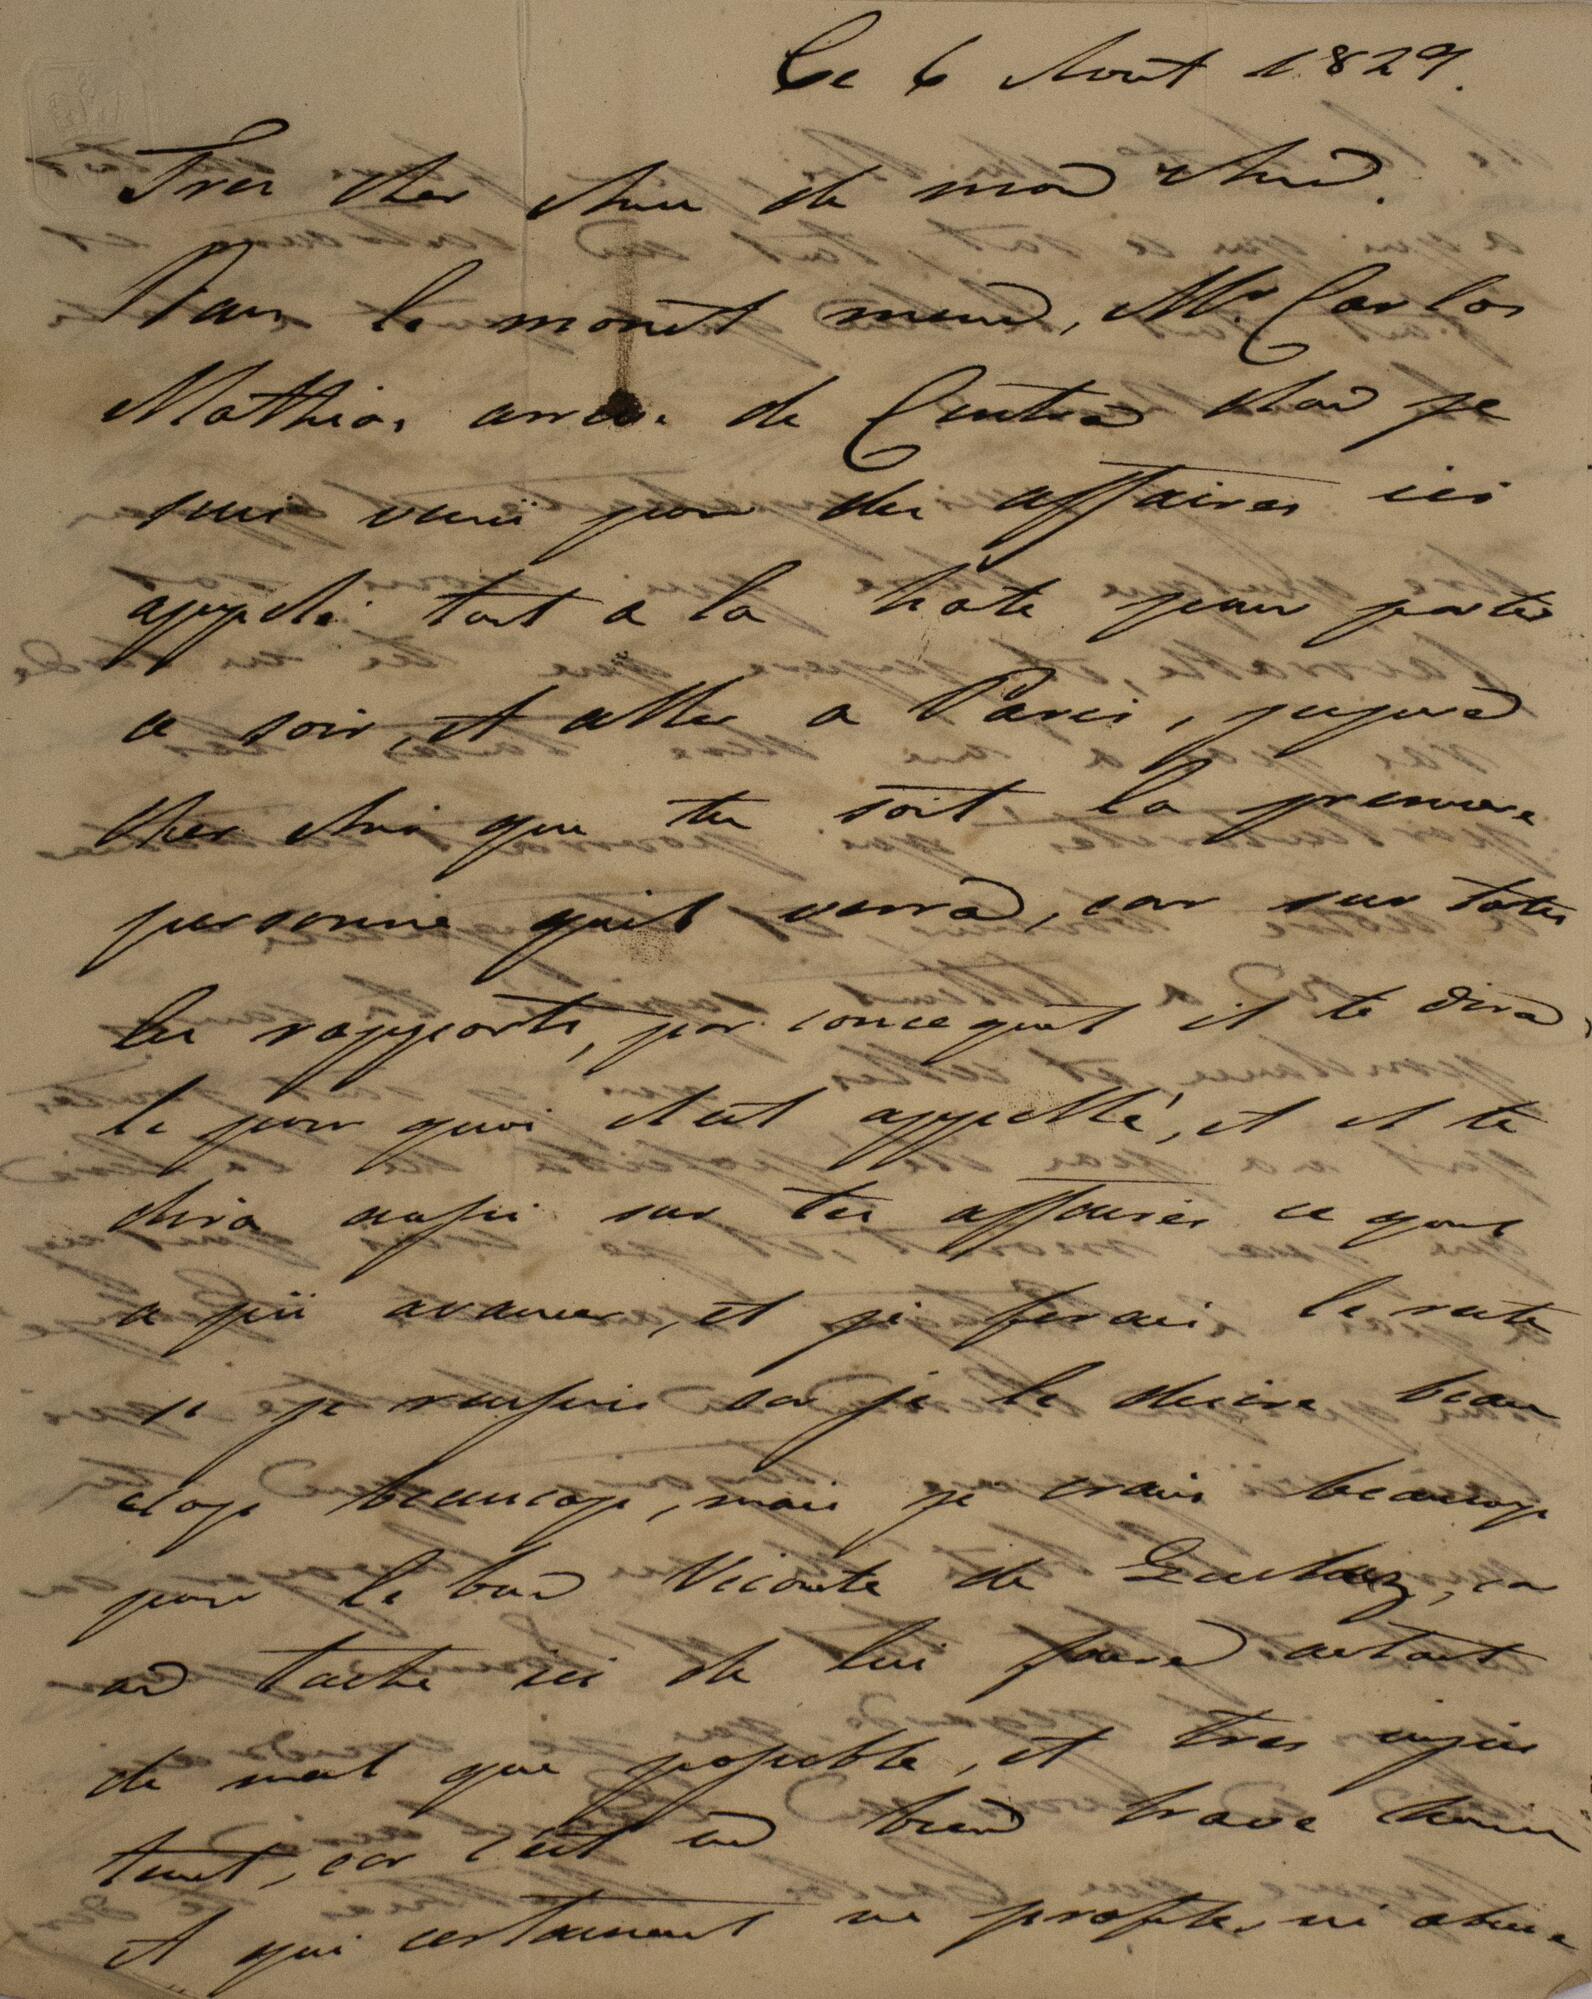 Ce 6 Aout 1829.
Tres cher Ami de mon Ame.
Dans le monet meme, Mr. Carlos
Mathias, arrive de Cintra dou je
suis venü pour des affaires ici
appelé tout a la hate pour partir
ce soir, et aller a Paris, jespere
cher Ami que tu soit la premiere
personne quil verra, car sur totes
les rapports, par concequent il te dira,
le pour quoi il est appellé, et il te
dira aussi sur tes affaires ce quil
a pü avancer, et je ferais le reste
si je reussis car je le desire beau
cop beaucop, mais je crains beaucop
pour le bon Viconte de Queluz, car
on tache ici de lui faire autant
de mal que possible, et tres injus
tement, car c'est un bien brave homme
et qui certainement ne profite, ni abuse